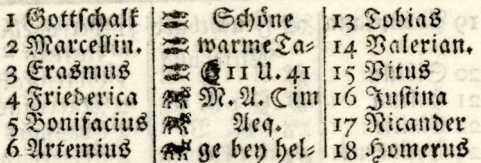 1 Gottſchalk Schöne 13 Tobias
2 Marcellin. warme Ta- 14 Valerian.
3 Erasmus 11 U. 41 15 Vitus
4 Friederica M. A. ☾ im 16 Juſtina
5 Bonifacius Aeq. 17 Nicander
6 Artemius ge bey hel- 18 Homerus